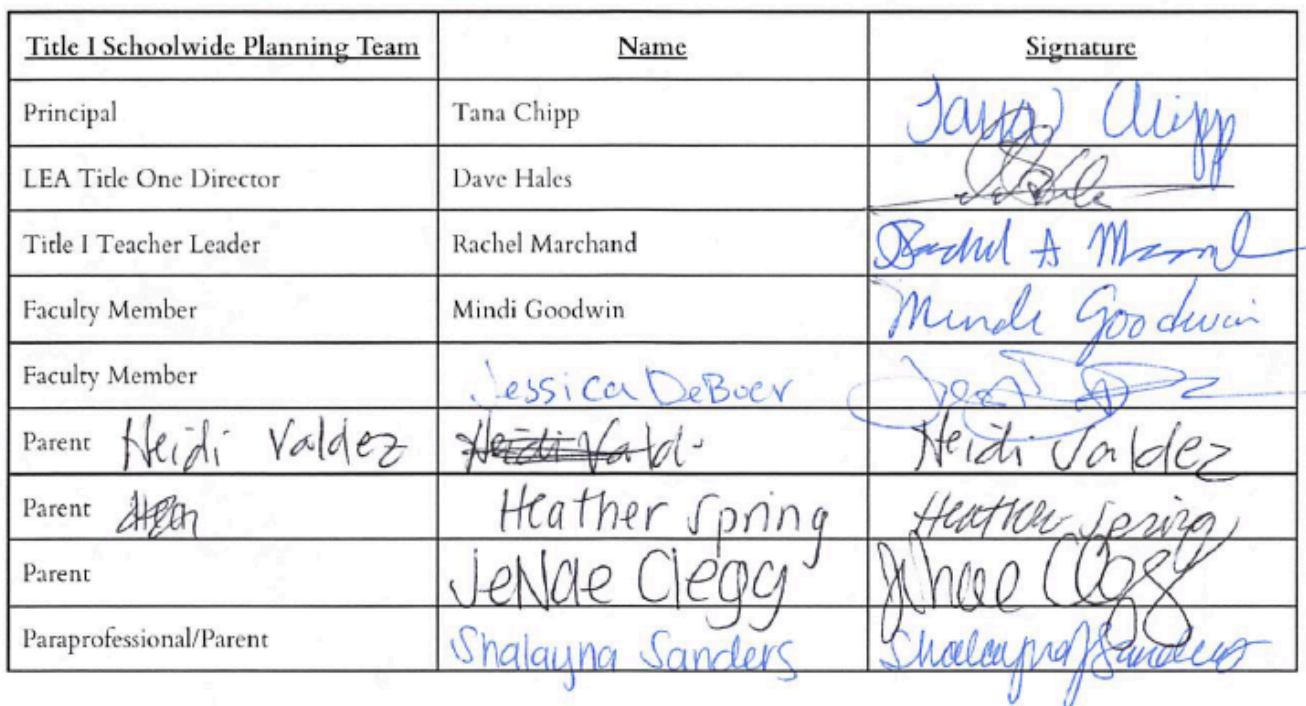 Title I Schoolwide Planning Team Name Signature
Principal Tana Chipp Tana Chipp
LEA Title One Director Dave Hales
Title I Teacher Leader Rachel Marchand Rachel A
Faculty Member Mindi Goodwin Mindi Goodwin
Faculty Member Jessica DeBoer
Parent Heidi Valdez Heidi Vald Heidi Valdez
Parent Heather Spring Heather Spring
Parent JeNae Clegg JeNae Clegg
Paraprofessional/Parent Shalayna Sanders Shalayna J Sanders